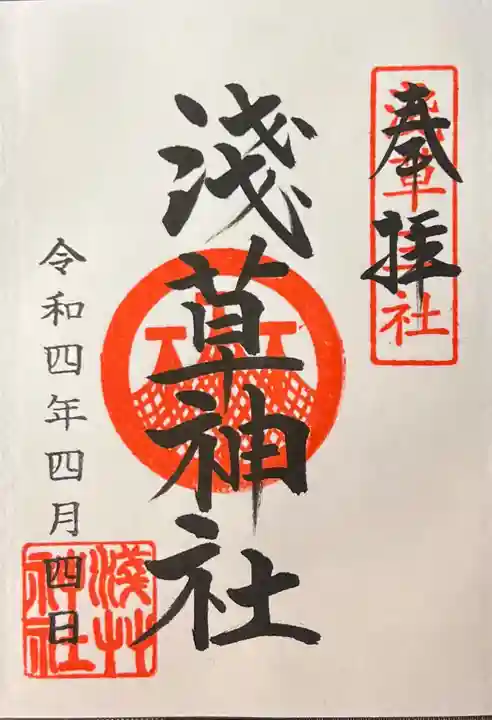 奉拝
浅草神社
淺草神社
令和四年四月四日
淺草神社